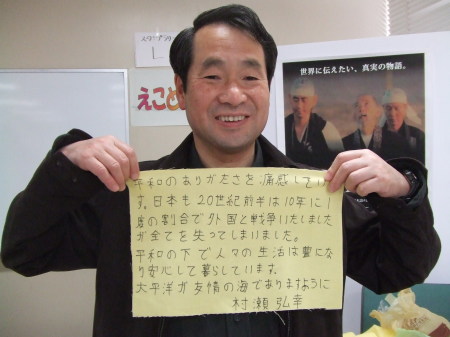 えこと
世界に伝えたい、真実の物語。
平和のありがたさを痛感していま
す。日本も20世紀前半は10年に1
度の割合で外国と戦争いたしました
が全てを失ってしまいました。
平和の下で人々の生活は豊にな
り安心して暮らしています。
太平洋が友情の海でありますように
村瀬弘幸